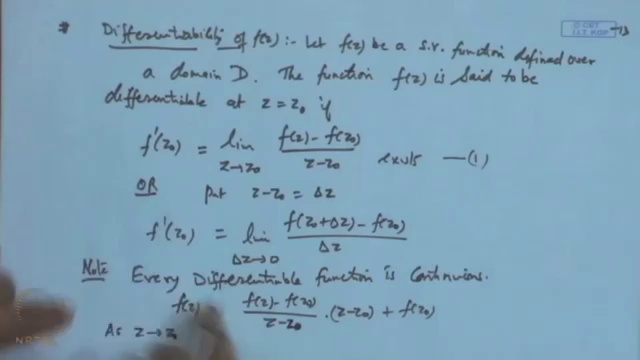 * Differentiability of f(z) :- Let f(z) be a s.v. function defined over
a domain D. The function f(z) is said to be
differentiable at z = z₀ if
f'(z₀) = lim_{z→z₀} (f(z) - f(z₀)) / (z - z₀) exists —(1)
OR Put z - z₀ = Δz
f'(z₀) = lim_{Δz→0} (f(z₀+Δz) - f(z₀)) / Δz
Note Every Differentiable function is continuous.
f(z) (f(z) - f(z₀)) / (z - z₀) · (z - z₀) + f(z₀)
As z → z₀
© CET
I.I.T. KGP